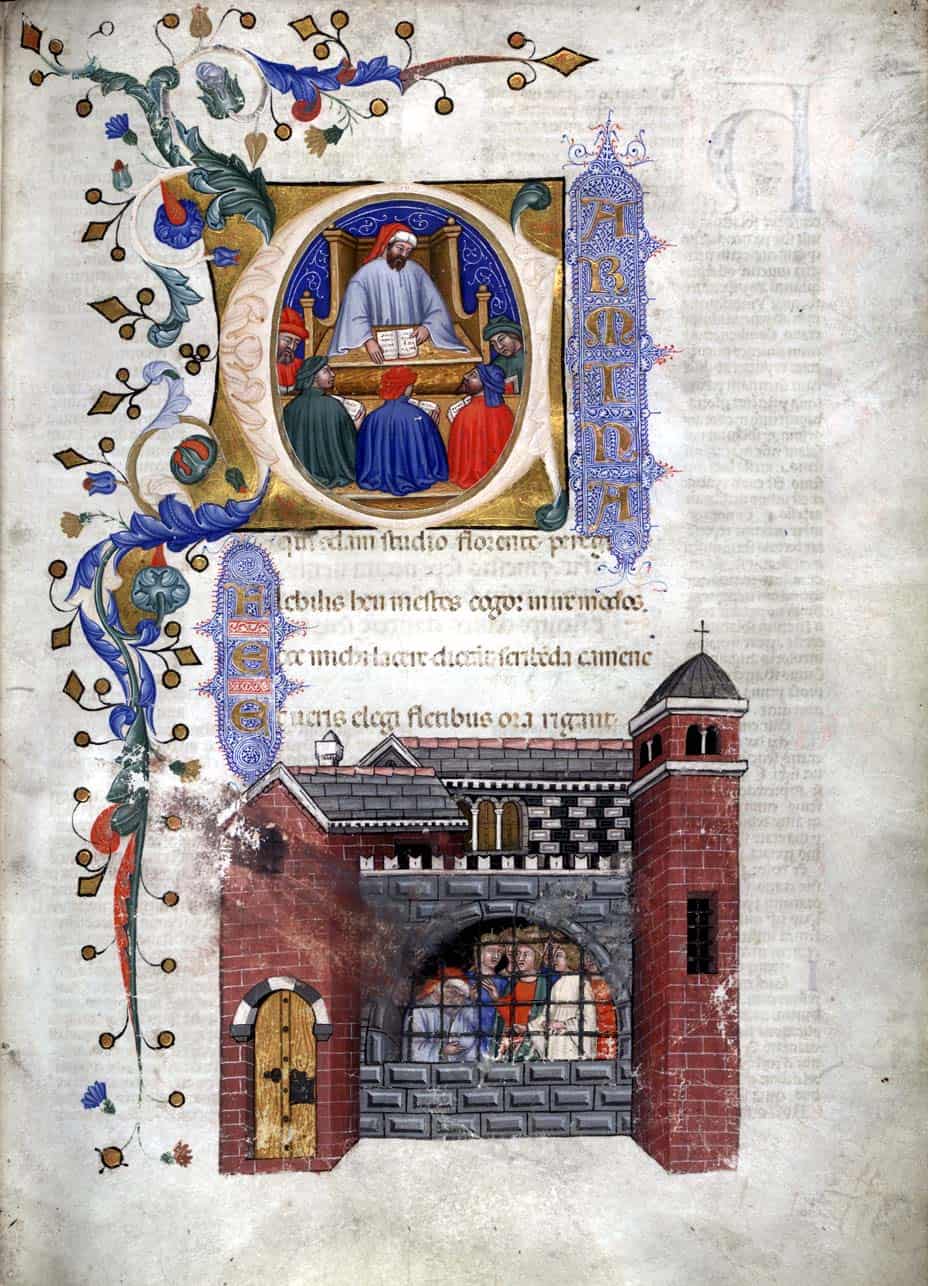 CARMINA
qui quondam studio florente peregi
Flebilis heu mestos cogor inire modos.
Ecce michi lacere dictāt scribēda camene
Et ueris elegi fletibus ora rigant.